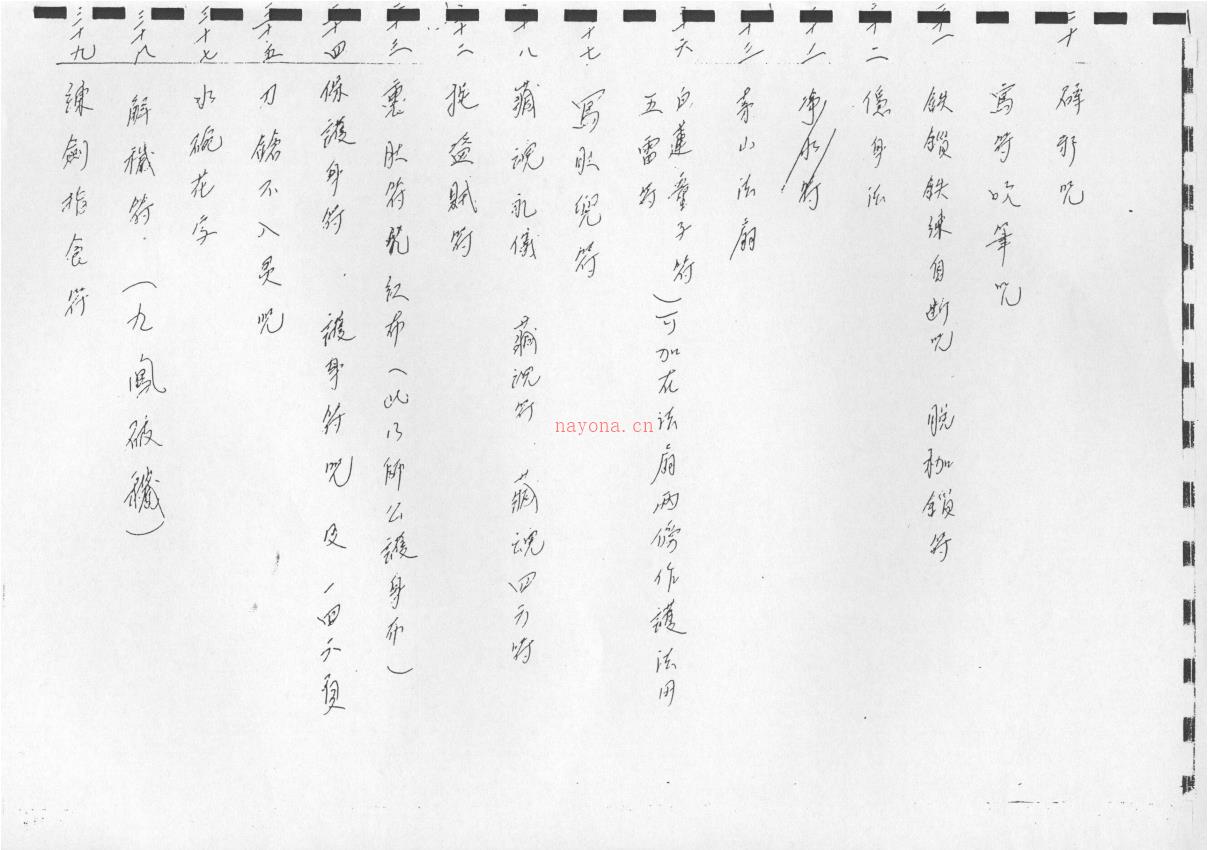 二十 辟邪咒
寫符吹筆咒
廿一 鉄鎖鉄練自断咒 脱枷鎖符
二十二 隱身法
淨水符
茅山法扇
二十六 白蓮童子符（可加在法扇两傍作護法用
五雷符
十七 寫肚兜符
廿八 藏魂礼儀 藏魂符 藏魂四方符
三十二 拖盗賊符
三十三 裹肚符 紅布（此乃師公護身布）
三十四 保護身符 護身符咒 及一四六頁
三十五 刀鎗不入灵咒
三十七 水碗花字
三十八 解穢符（九鳳破穢）
三十九 諌劍指食符
nayona.cn